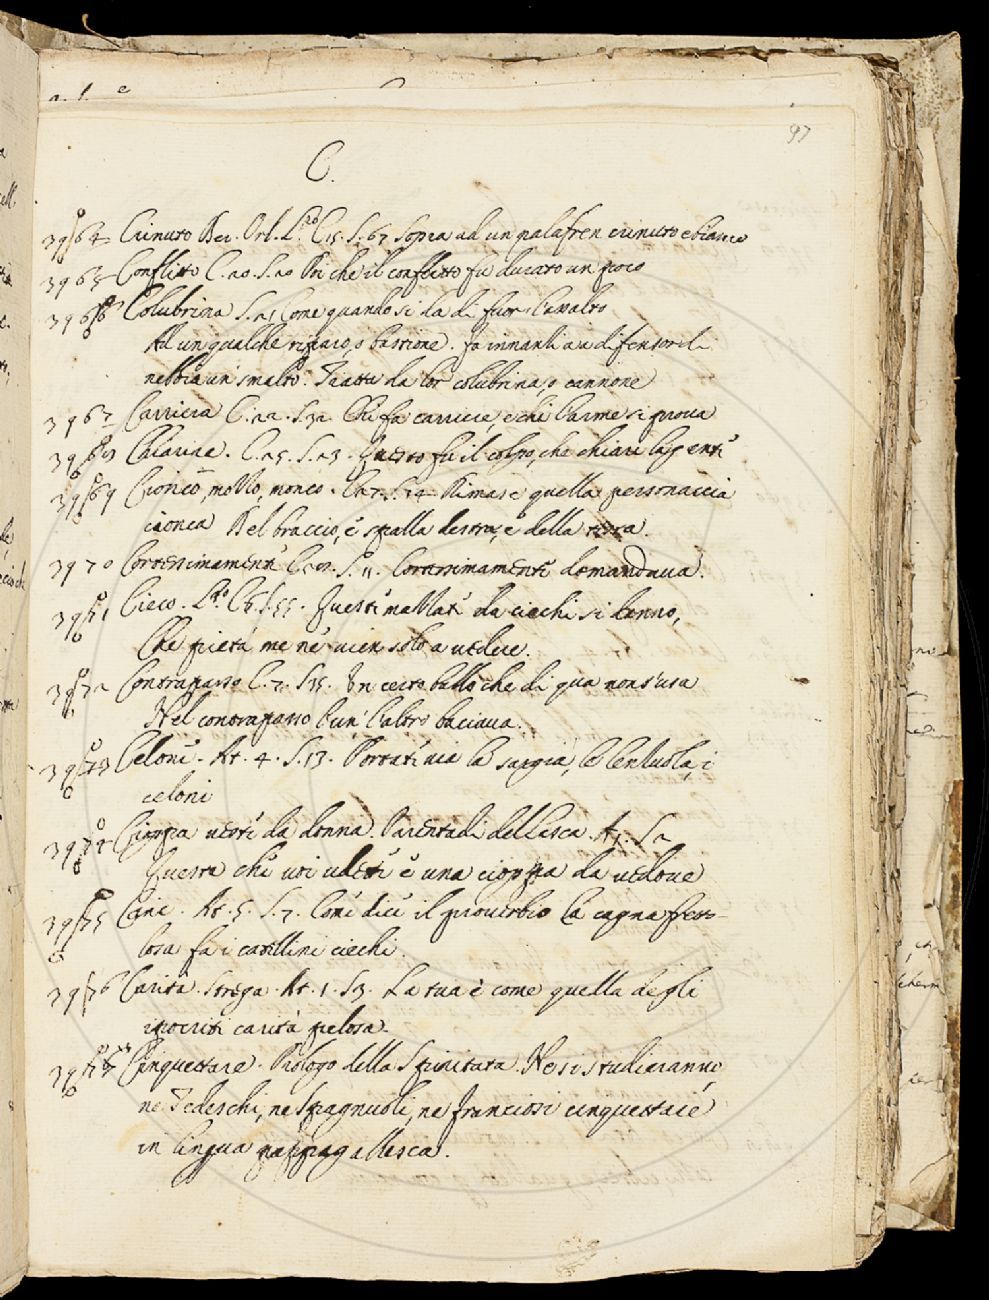 97
C.
3964 Crinuto Ber. Orl. L.ro C. 15. S. 67 sopra ad un palafren crinuto e bianco
3965 Conflitto C. 20. S. 20 Poi che il conflitto fu durato un poco
3966 Colubrina S. 21 Come quando si da di fuor l'assalto
Ad un qualche riparo, o bastione. fa innanti a a difensori
nebbia un smalto. Tratta da lor colubrina, o cannone
3967 Carriera C. 22. S. 32. Chi fa carriere, e chi l'arme si prova
3968 Chiarire. C. 25. S. 23. Questo fu il colpo, che chiarì la gente
3969 Cionco, mozzo, monco. C. 27. S. 14 Rimase quella personaccia
cionca Del braccio, e spalla destra, e della testa.
3970 Cortesimamente S. 11. Cortesimamente domandava.
3971 Cieco. L.ro C. 6. S. 55. Questi mazzati da ciechi si danno,
Che pietà me ne vien solo a vedere.
3972 Contrapasso C. 7. S. 15. Un certo ballo che di qua non s'usa
Nel contrapasso l'un l'altro baciava.
3973 Celoni. At. 4. S. 13. Portati via la sargia, le lenzuola, i
celoni
3974 Cioppa vesti da donna. Parentadi del Lasca. A. 5. S. 2
Questa che voi vedete è una cioppa da vedove
3975 Cane. At. 5. S. 7. Come dice il proverbio la cagna frettolosa
fa i catellini ciechi.
3976 Carità. Strega. At. 1. S. 3. La tua è come quella degli
ipocriti carità pelosa.
3977 Cinquettare. Prologo della Spiritata. Ne si studieranno
ne Tedeschi, ne Spagnuoli, ne franciosi cinquettare
in lingua pappagallesca.